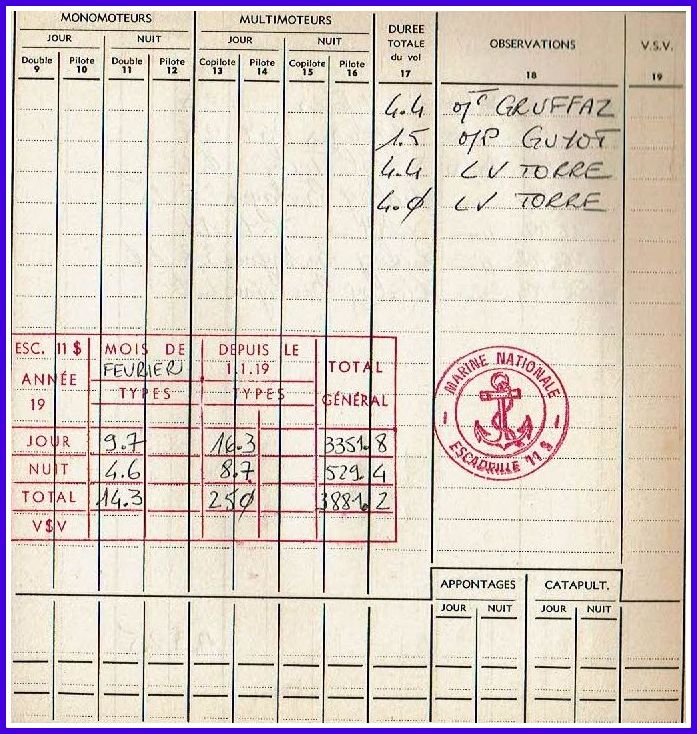 MONOMOTEURS MULTIMOTEURS DUREE TOTALE du vol OBSERVATIONS V.S.V.
JOUR NUIT JOUR NUIT
Double Pilote Double Pilote Copilote Pilote Copilote Pilote
9 10 11 12 13 14 15 16 17 18 19
4.4 GRUFFAZ
1.5 O/P GUYOT
4.4 LV TORRE
4.0 LV TORRE
ESC. 11 S MOIS DE FEVRIER DEPUIS LE 1.1.19 TOTAL GÉNÉRAL
ANNÉE 19 TYPES TYPES
JOUR 9.7 16.3 3351.8
NUIT 4.6 8.7 529.4
TOTAL 14.3 25.0 3881.2
V$V
MARINE NATIONALE
ESCADRILLE 11 S
APPONTAGES CATAPULT.
JOUR NUIT JOUR NUIT